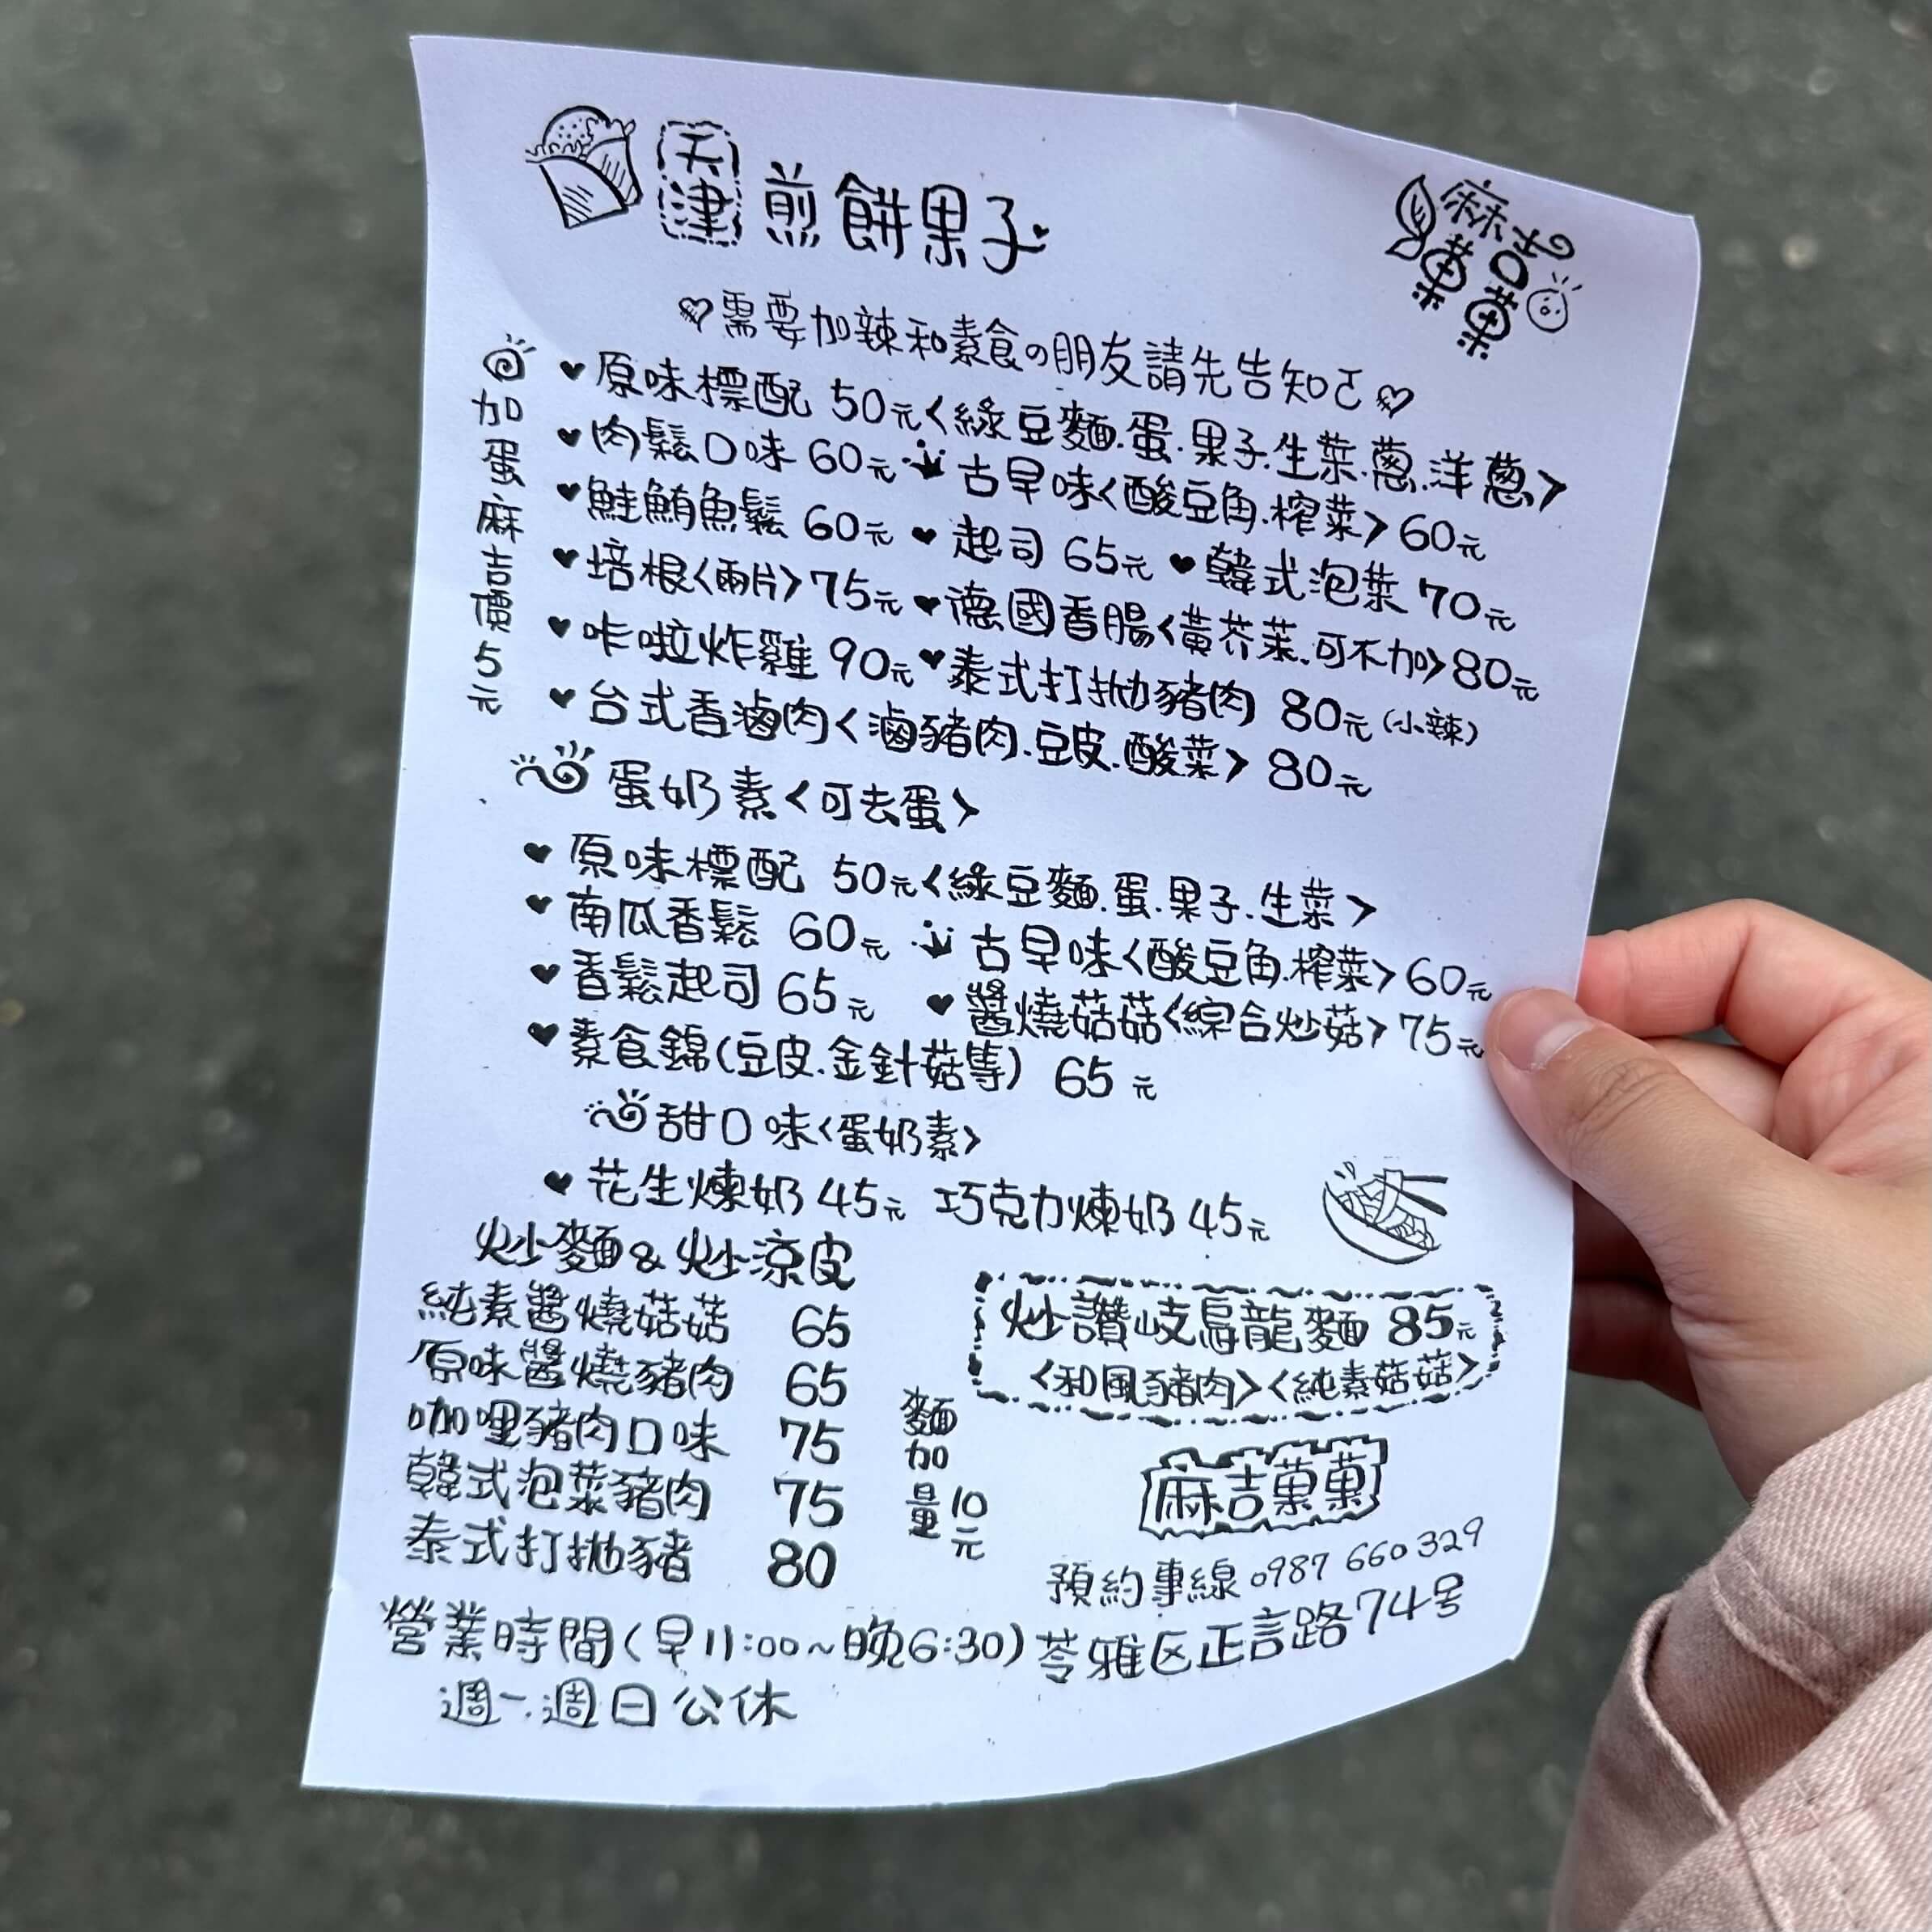 天津 煎餅果子
麻吉菓菓
♡需要加辣和素食の朋友請先告知ㄛ♡
加蛋麻吉價5元
♥原味標配 50元<綠豆麵.蛋.果子.生菜.蔥.洋蔥>
♥肉鬆口味 60元 古早味<酸豆角.榨菜>60元
♥鮭鮪魚鬆 60元 ♥起司 65元 ♥韓式泡菜 70元
♥培根<兩片>75元 ♥德國香腸<黃芥茉.可不加>80元
♥咔啦炸雞 90元 ♥泰式打拋豬肉 80元(小辣)
♥台式香滷肉<滷豬肉.豆皮.酸菜>80元
蛋奶素<可去蛋>
♥原味標配 50元<綠豆麵.蛋.果子.生菜>
♥南瓜香鬆 60元 古早味<酸豆角.榨菜>60元
♥香鬆起司 65元 ♥醬燒菇菇<綜合炒菇>75元
♥素食錦(豆皮.金針菇等) 65元
甜口味<蛋奶素>
♥花生煉奶 45元 巧克力煉奶 45元
炒麵&炒涼皮
純素醬燒菇菇 65
原味醬燒豬肉 65
咖哩豬肉口味 75
韓式泡菜豬肉 75
泰式打拋豬 80
麵加量10元
炒讚岐烏龍麵 85元
<和風豬肉><純素菇菇>
麻吉菓菓
預約專線 0987 660 329
營業時間(早11:00~晚6:30) 苓雅区正言路74号
週一.週日公休